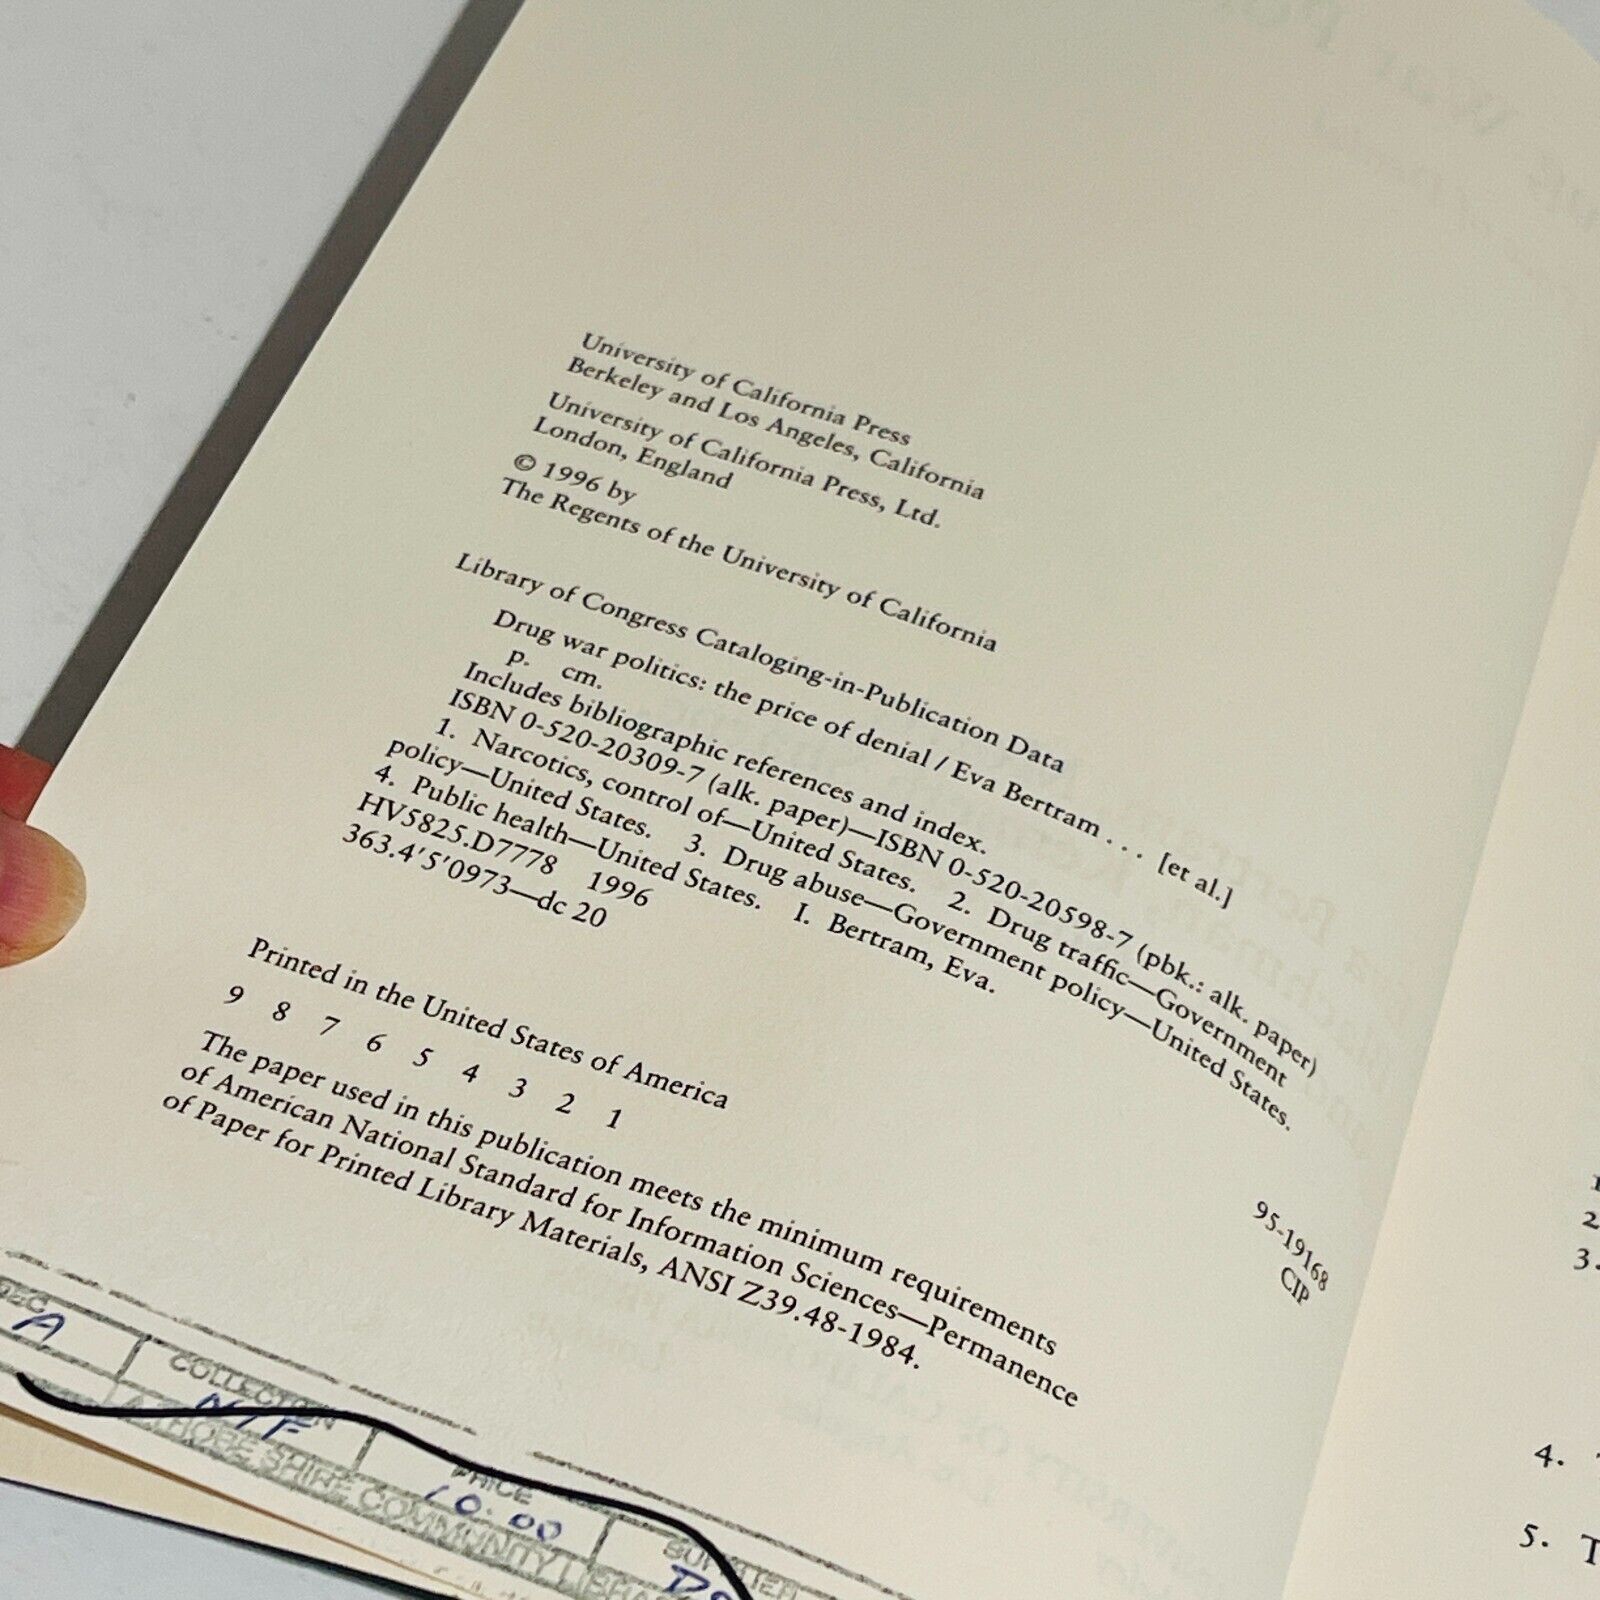 University of California Press
Berkeley and Los Angeles, California
University of California Press, Ltd.
London, England
© 1996 by
The Regents of the University of California
Library of Congress Cataloging-in-Publication Data
Drug war politics: the price of denial / Eva Bertram . . . [et al.]
p. cm.
Includes bibliographic references and index.
ISBN 0-520-20309-7 (alk. paper)—ISBN 0-520-20598-7 (pbk.: alk. paper)
1. Narcotics, control of—United States. 2. Drug traffic—Government
policy—United States. 3. Drug abuse—Government policy—United States.
4. Public health—United States. I. Bertram, Eva.
HV5825.D7778 1996
363.4'5'0973—dc 20
95-19168
CIP
Printed in the United States of America
9 8 7 6 5 4 3 2 1
The paper used in this publication meets the minimum requirements
of American National Standard for Information Sciences—Permanence
of Paper for Printed Library Materials, ANSI Z39.48-1984.
A
COLLECTION
NIF
PRICE
10.00
SHIRE COMMUNITY
1
2.
3.
4.
5. T